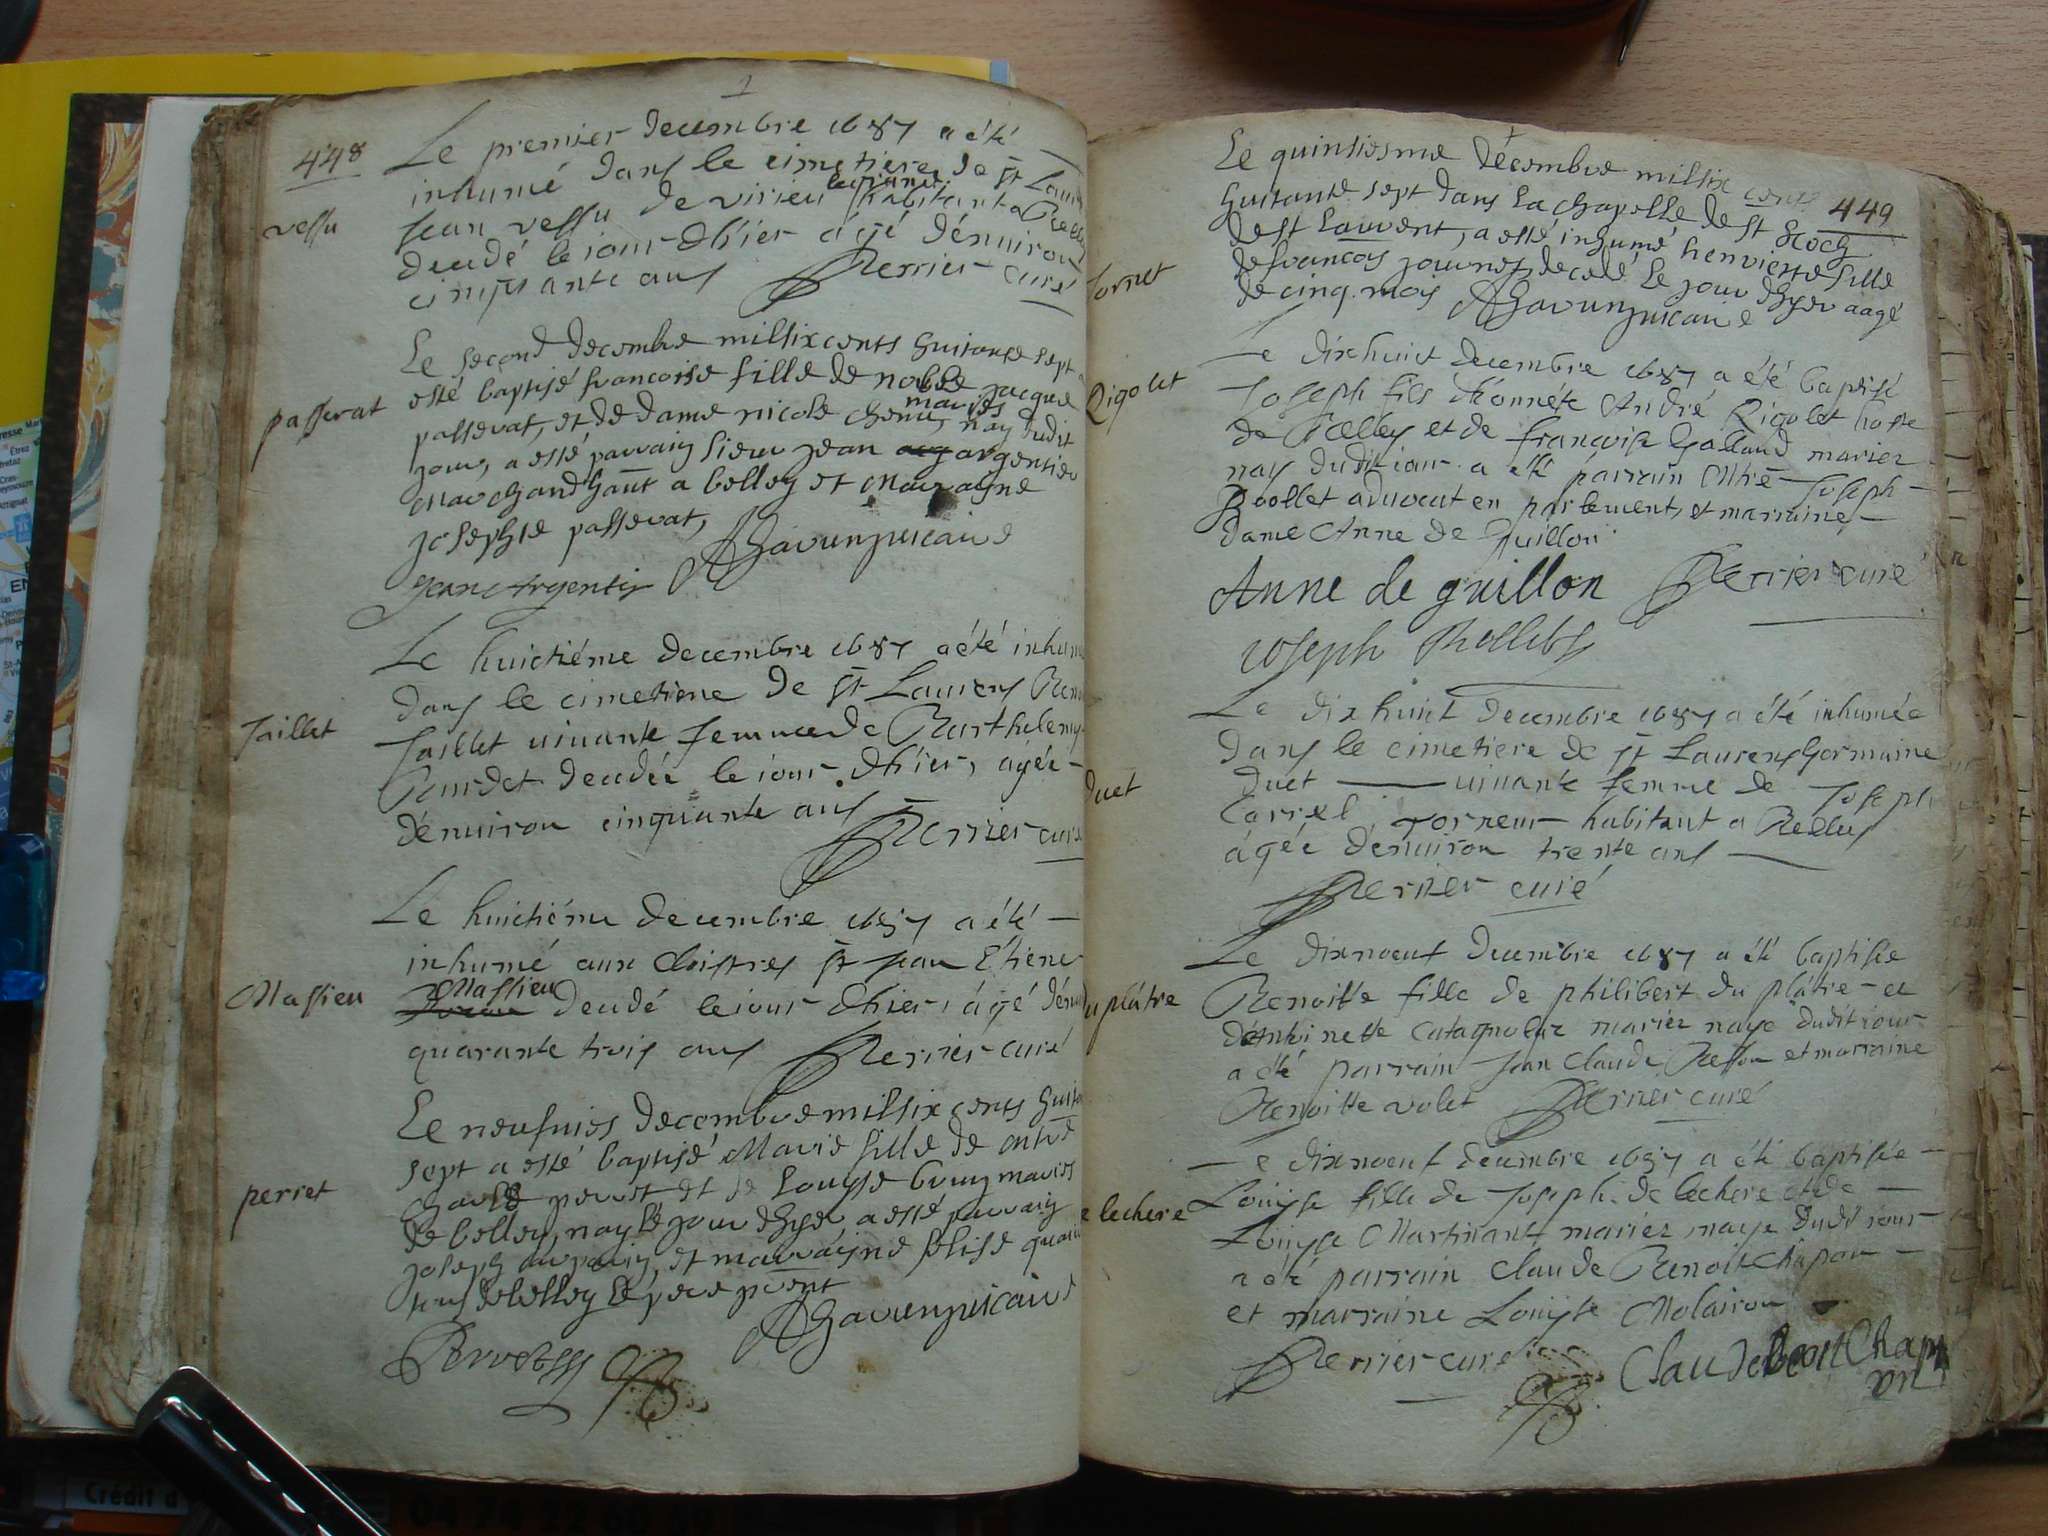 1
448
Le premier decembre 1687 a été
inhumé dans le cimetiere de st Laurens
vessu
Jean vessu de virieu le grand habitant a Belley
decedé le iour d'hier agé d'énuiron
cinquante ans Perrier curé
Le second decembre millsixcents huitante sept a
passerat
esté baptisé francoise fille de noble jacque
passerat, et de dame nicole chenu mariés nay dudit
jour, a esté parrain sieur jean argentier
Marchand hant a belley et Marraine
josephte passerat,
Jean Argentier
Le huictiéme decembre 1687 a été inhumé
dans le cimetiere de st Laurens
Jaillet
Jaillet uiuante femme de Barthelemy
Bourdet decedée le iour d'hier, agée
d'énuiron cinquante ans Perrier curé
Le huictiéme decembre 1687 a été
inhumé aux cloistres st Jean Etiene
Massieu
Massieu decedé le iour d'hier, agé d'énui
quarante trois ans Perrier curé
Le neufuies decembre millsix cents huita
sept a esté baptisé Marie fille de
perret
perret et de Louyse mariés
de belley, nay le jour d'hyer a esté parrain
joseph et marraine
de belley le pere

Le quinsiesme décembre millsix cents
449
huitante sept dans la chapelle de st Roch
de st Laurent, a esté inhumé henrieste fille
Jornet
de francois journet decedé le jour d'hyer aagé
de cinq mois
Le dixhuict decembre 1687 a été baptisé
Rigolet
Joseph fils d'honnéte André Rigolet hoste
de Belley et de françoise Galland mariez
nay dudit iour a été parrain Mtre Joseph
Rollet aduocat en parlement, et marraine
dame Anne de Guillon
Anne de guillon Perrier curé
Joseph Rollet
Le dixhuict decembre 1687 a été inhumée
dans le cimetiere de st Laurens Germaine
duet
duet uiuante femme de Joseph
Carrel Torneur habitant a Belley
ágée d'énuiron trente ans
Perrier curé
Le dixneuf decembre 1687 a été baptisée
du plâtre
Benoitte fille de philibert du plâtre et
d'Antoinette mariez naye dudit iour
a été parrain Jean Claude et marraine
Benoitte volet Perrier curé
Le dixneuf decembre 1687 a été baptisée
de lechere
Louyse fille de Joseph de lechere et de
Louyse Martinant mariez naye dudit iour
a été parrain Claude Benoit Chapon
et marraine Louyse Molairon
Perrier curé
Claude Benoit Chapon